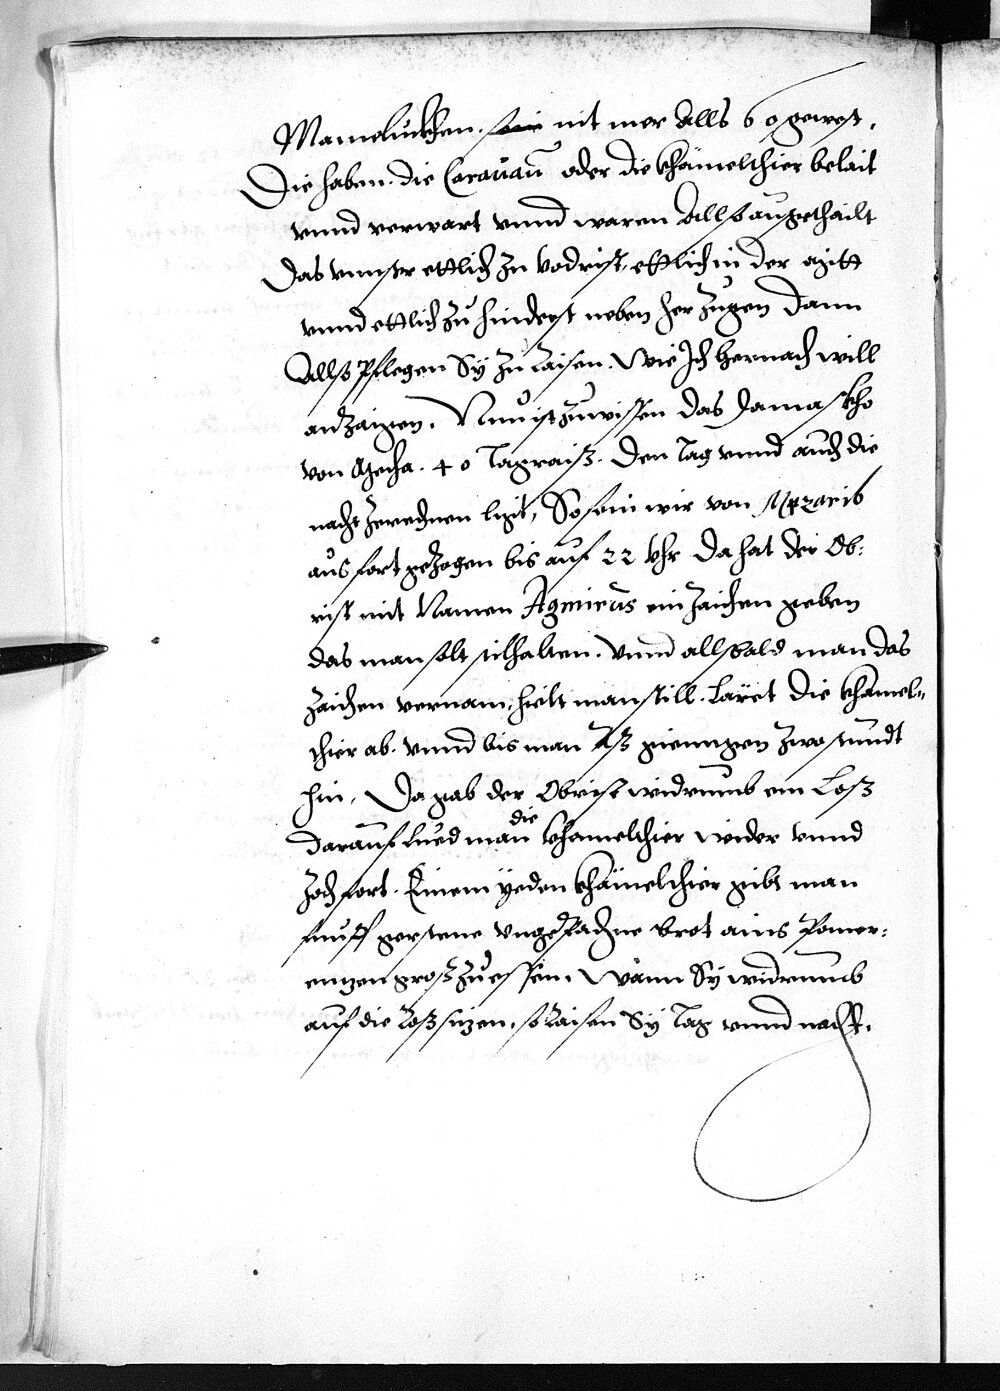 Mamelückhen. sein nit mer Alls 60 gewest,
Die haben. die Carauan oder die Khämelthier belait
vnnd verwart vnnd waren Allso außgethailt
Das vnnser ettlich zu vodrist, ettlich in der mitt
vnnd ettlich zu hinderst neben her zugen dann
Allso Pflegen Sy zu Raisen. Wie Ich hernach will
anzaigen. Nun ist zuwissen das Damaskho
von Mecha. 40 Tagraiß. Den Tag vnnd auch die
nacht zerechnen ligt, So sein wir von Mezarib
aus fort gezogen bis auf 22 Uhr Da hat der Ob:
rist mit Namen Agmirus ein Zaichen geben
das man solt stilhalten. Vnnd allsbald man das
Zaichen vernam, hielt man still. Laret die Khamel„
thier ab. vnnd bis man Aß giengen zwo stundt
hin, Da gab der Obrist widrumb ein Loß
darauf Lued man die Khamelthier wider vnnd
zoch fort. Einem yeden Khämelthier gibt man
funff gerstene vngepachne brot ains Pomer:
enzen groß zu essen. Wann Sy widrumb
auf die Roß sizen, so Raisen Sy Tag vnnd nacht.